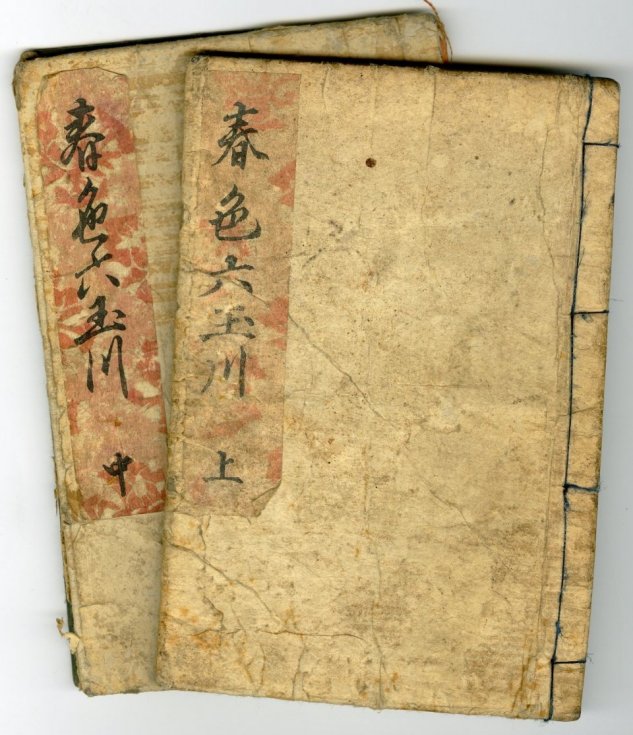 春色六玉川
上
春色六玉川
中